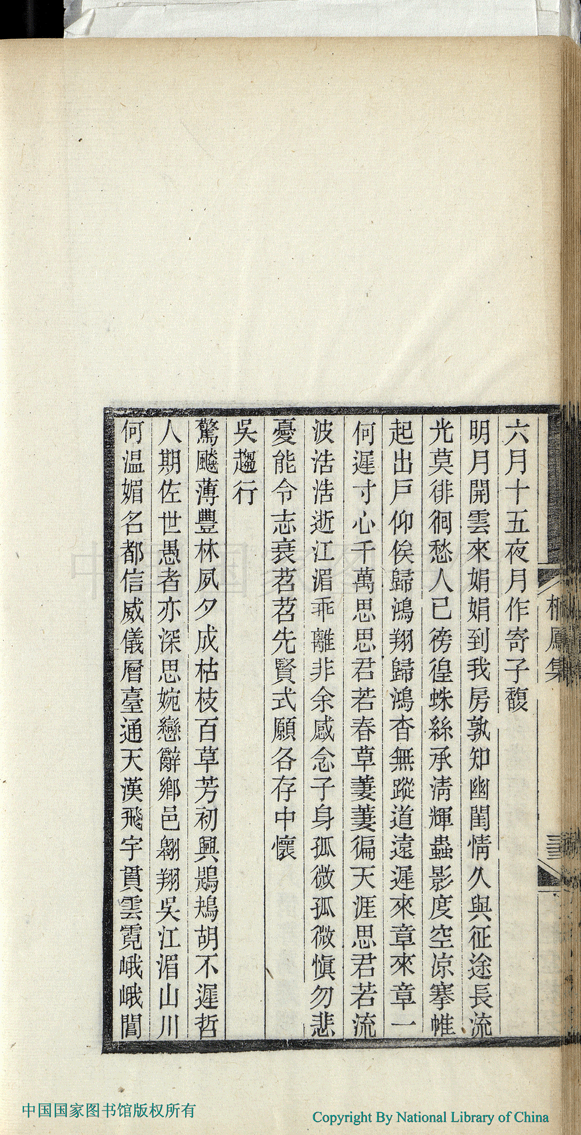 六月十五夜月作寄子馥
明月開雲來娟娟到我房孰知幽閨情久與征途長流
光莫徘徊愁人已徬徨蛛絲承淸輝蟲影度空凉搴帷
起出戸仰俟歸鴻翔歸鴻杳無蹤道遠遲來章來章一
何遲寸心千萬思思君若春草萋萋徧天涯思君若流
波浩浩逝江湄乖離非余慼念子身孤微孤微愼勿悲
憂能令志衰苕苕先賢式願各存中懷
吳趨行
驚飈薄豐林夙夕成枯枝百草芳初興鵾鴂胡不遲哲
人期佐世愚者亦深思婉戀辭鄉邑翱翔吳江湄山川
何温媚名都信威儀層臺通天漢飛宇貫雲霓峨峨閶
鳳集
中国国家图书馆版权所有
Copyright By National Library of China